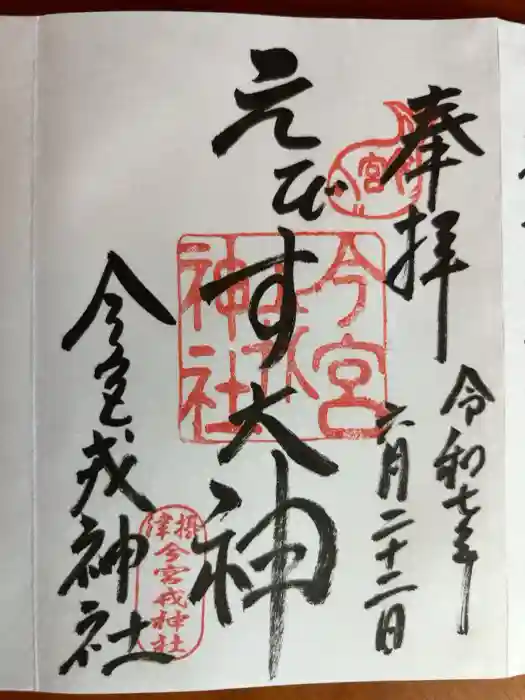 奉拝
令和七年
六月二十二日
今宮
えびす大神
今宮戎神社
今宮戎神社
摂津
今宮戎神社